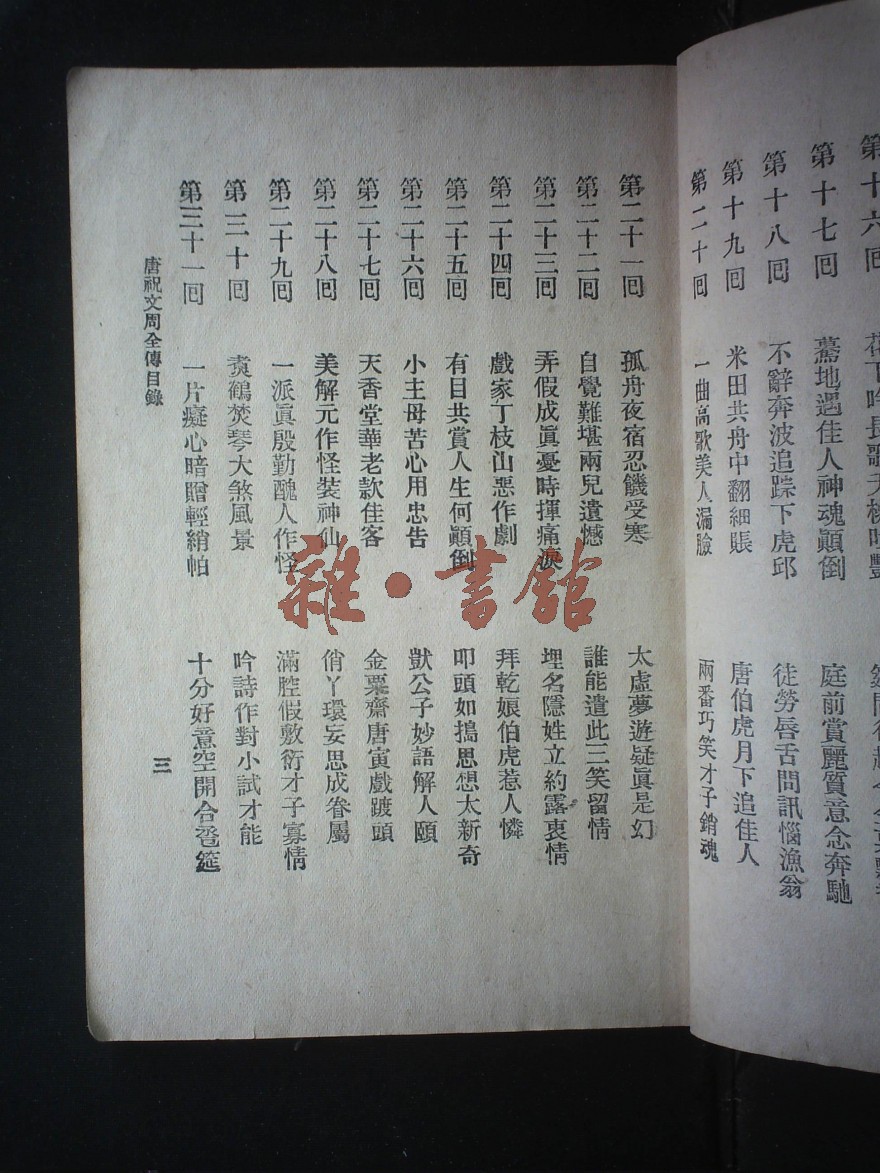 第十六回
第十七回 驀地遇佳人神魂顚倒 庭前賞麗質意念奔馳
第十八回 不辭奔波追踪下虎邱 徒勞唇舌問訊惱漁翁
第十九回 米田共舟中翻細賬 唐伯虎月下追佳人
第二十回 一曲高歌美人漏臉 兩番巧笑才子銷魂
第二十一回 孤舟夜宿忍饑受寒 太虛夢遊疑眞是幻
第二十二回 自覺難堪兩兒遺憾 誰能遣此三笑留情
第二十三回 弄假成眞憂時揮痛淚 埋名隱姓立約露衷情
第二十四回 戲家丁枝山惡作劇 拜乾娘伯虎惹人憐
第二十五回 有目共賞人生何顚倒 叩頭如搗思想太新奇
第二十六回 小主母苦心用忠告 獃公子妙語解人頤
第二十七回 天香堂華老款佳客 金粟齋唐寅戲踱頭
第二十八回 美解元作怪裝神仙 俏丫環妄思成眷屬
第二十九回 一派眞殷勤醜人作怪 滿腔假敷衍才子寡情
第三十回 煑鶴焚琴大煞風景 吟詩作對小試才能
第三十一回 一片癡心暗贈輕綃帕 十分好意空開合卺筵
唐祝文周全傳目錄
三
雜·書館